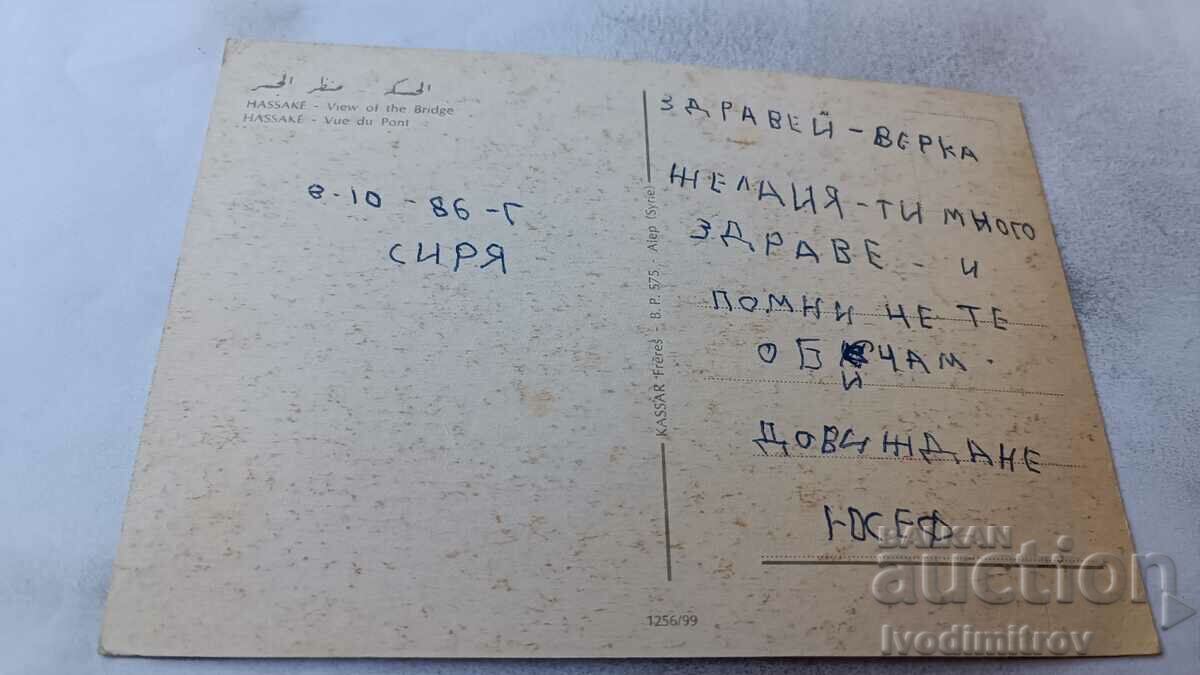 الحسكة - منظر الجسر
HASSAKÉ - View of the Bridge
HASSAKÉ - Vue du Pont
8-10-86-Г
СИРЯ
KASSAR Frères - B. P. 575, - Alep (Syrie)
1256/99
ЗДРАВЕЙ-ВЕРКА
ЖЕЛАИЯ-ТИ МНОГО
ЗДРАВЕ - И
ПОМНИ ЧЕ ТЕ
ОБИЧАМ.
ДОВИЖДАНЕ
ЮСЕФ
BALKAN
auction
Ivodimitrov